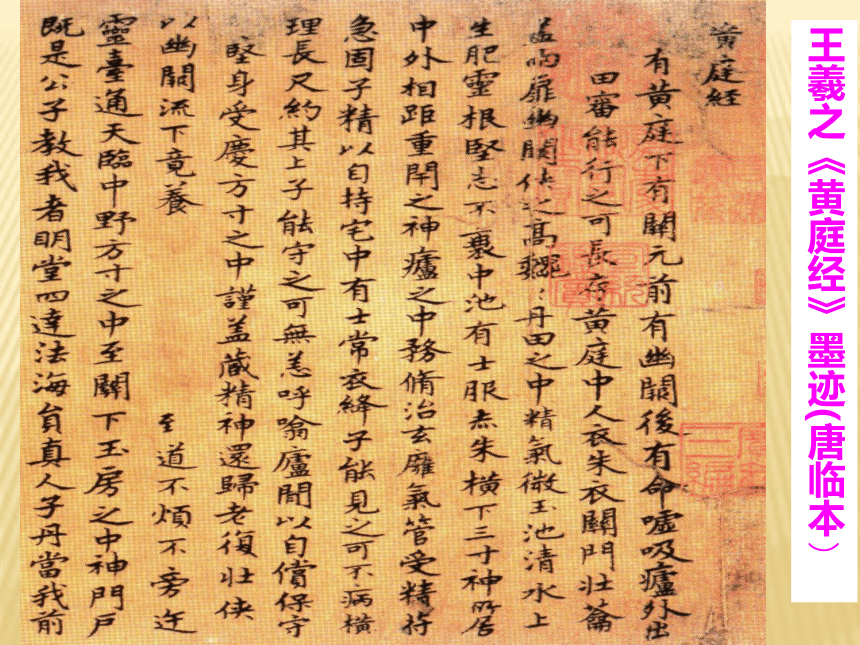 黄庭經
有黄庭下有關元前有幽闕後有命嘘吸廬外出
田審能行之可長存黄庭中人衣朱衣關門壮蘥
盖两扉幽闕侠之高巍〻丹田之中精氣微玉池清水上
生肥靈根堅志不衰中池有士服赤朱横下三寸神所居
中外相距重閇之神廬之中務脩治玄廱氣管受精符
急固子精以自持宅中有士常衣絳子能見之可不病横
理長尺約其上子能守之可無恙呼噏廬間以自償保守
堅身受慶方寸之中謹盖藏精神還歸老復壮侠
以幽闕流下竟養 至道不煩不旁迕
靈臺通天臨中野方寸之中至關下玉房之中神門戸
既是公子教我者明堂四達法海貟真人子丹當我前
王羲之《黄庭经》墨迹(唐临本)